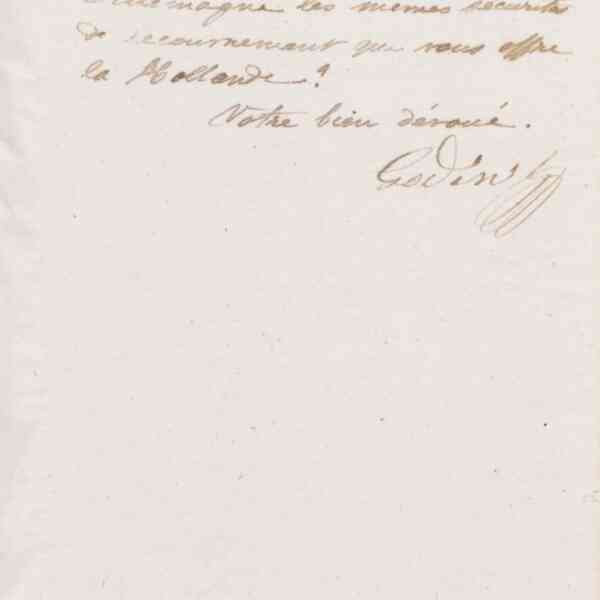 Allemagne les mêmes sécurités
de recouvrement que vous offre
la Hollande ?
Votre bien dévoué.
Godin